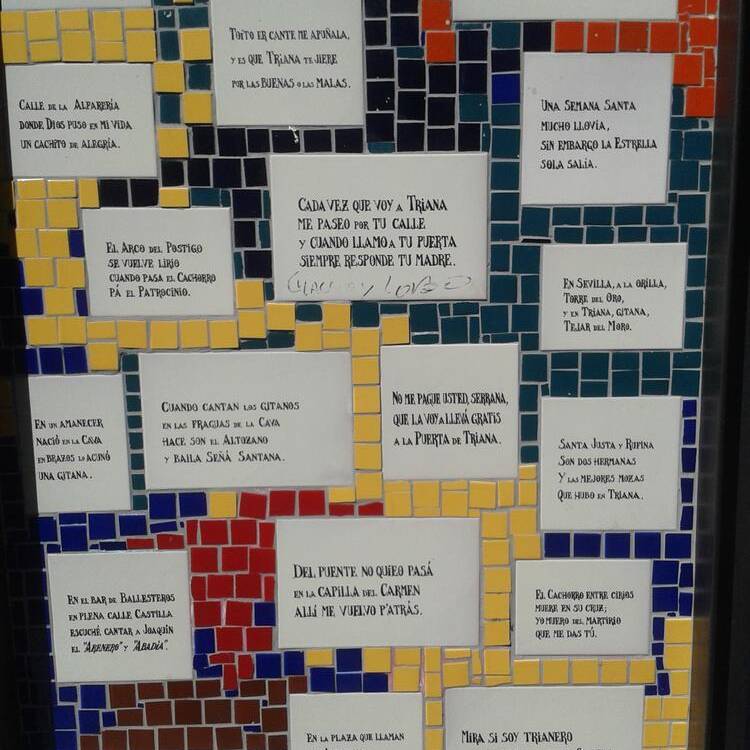 TOÍTO ER CANTE ME APUÑALA,
Y ES QUE TRIANA TE JIERE
POR LAS BUENAS O LAS MALAS.
CALLE DE LA ALFARERÍA
DONDE DIOS PUSO EN MI VIDA
UN CACHITO DE ALEGRÍA.
UNA SEMANA SANTA
MUCHO LLOVÍA,
SIN EMBARGO LA ESTRELLA
SOLA SALÍA.
CADA VEZ QUE VOY A TRIANA
ME PASEO POR TU CALLE
Y CUANDO LLAMO A TU PUERTA
SIEMPRE RESPONDE TU MADRE.
EL ARCO DEL POSTIGO
SE VUELVE LIRIO
CUANDO PASA EL CACHORRO
PÁ EL PATROCINIO.
EN SEVILLA, A LA ORILLA,
TORRE DEL ORO,
Y EN TRIANA, GITANA,
TEJAR DEL MORO.
EN UN AMANECER
NACIÓ EN LA CAVA
EN BRAZOS LO ACUNÓ
UNA GITANA.
CUANDO CANTAN LOS GITANOS
EN LAS FRAGUAS DE LA CAVA
HACE SON EL ALTOZANO
Y BAILA SEÑÁ SANTANA.
NO ME PAGUE USTED, SERRANA,
QUE LA VOY A LLEVÁ GRATIS
A LA PUERTA DE TRIANA.
SANTA JUSTA Y RUFINA
SON DOS HERMANAS
Y LAS MEJORES MOZAS
QUE HUBO EN TRIANA.
EN EL BAR DE BALLESTEROS
EN PLENA CALLE CASTILLA
ESCUCHÉ CANTAR A JOAQUÍN
EL "ARENERO" Y "ABADÍA".
DEL PUENTE NO QUIEO PASÁ
EN LA CAPILLA DEL CARMEN
ALLÍ ME VUELVO P'ATRÁS.
EL CACHORRO ENTRE CIRIOS
MUERE EN SU CRUZ;
YO MUERO DEL MARTIRIO
QUE ME DAS TÚ.
EN LA PLAZA QUE LLAMAN
MIRA SI SOY TRIANERO